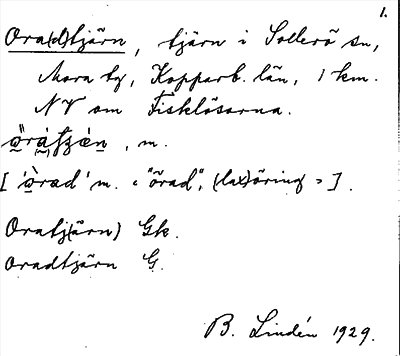 1.
Ora(d)tjärn, tjärn i Sollerö sn,
Mora tg, Kopparb. län, 1 km.
NV om Fisklösarna.
, m.
['òrad' m. "örad", (lax)öring ].
Oratj(ärn) Gk.
Oradtjärn G.
B. Lindén 1929.